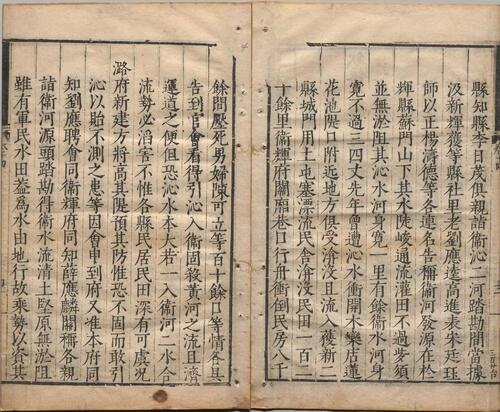 縣知縣李日茂俱詣衞沁二河踏勘間當據
汲新輝獲等縣社里老劉應逵高進表朱廷珏
師以正楊濤德等各連名告稱衞河發源在於
輝縣蘇門山下其水陡峻通流灌田不過步須
並無淤阻其沁水河身寬一里有餘衞水河身
寛不過三四丈先年曾遭沁水衝開木欒店蓮
花池隄口附近地方俱受渰没且流入獲新二
縣城門用土屯塞漂流民舎渰没民田一百二
十餘里衞輝府關廟巷口行舟衝倒民房八千
餘間壓死男婦陳可立等百十餘口等情各具
告到官會看得引沁入衞固殺黄河之流且濟
運道之便但沁水本大若一入衞河二水合
流勢必滔害不惟各縣民居民田深有可虞况
潞府新建方將高其隄預其防惟恐不固而敢引
沁以貽不測之患等因會申到府又准本府同
知劉應聘會同衞輝府同知薛應麟關稱各親
詣衞河源頭踏勘得衞水流清土堅原無淤阻
雖有軍民水田益為水由地行故乘勢以資其